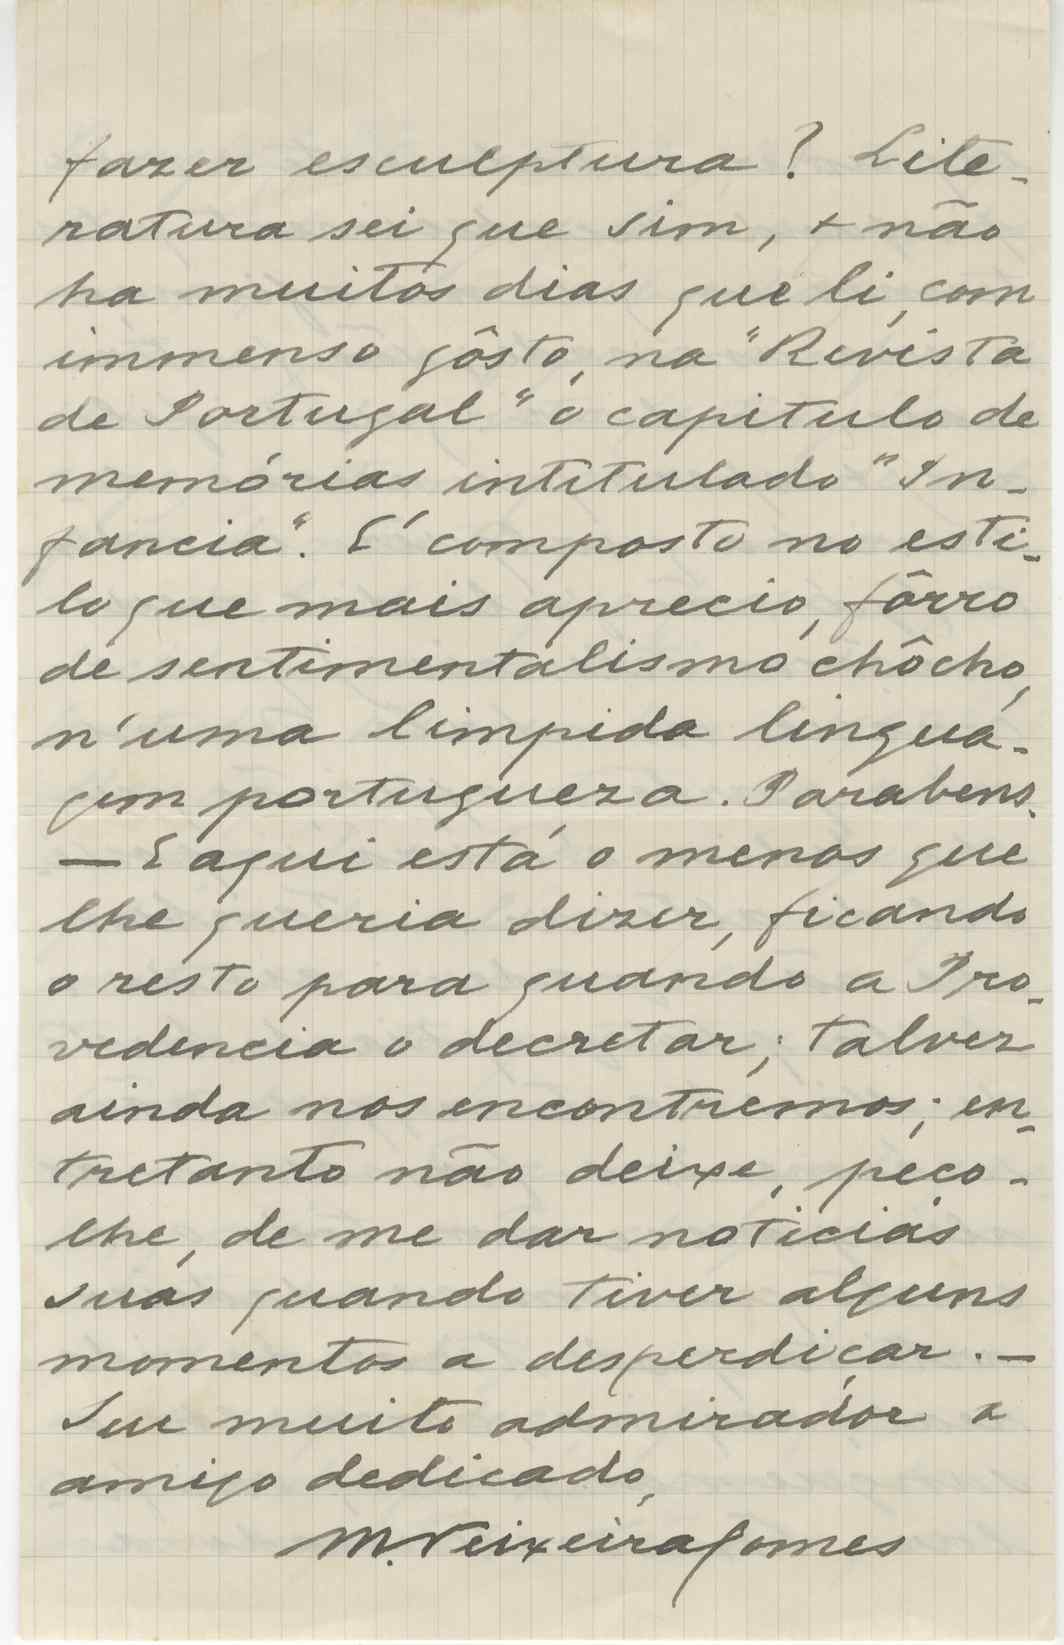 fazer esculptura? Lite-
ratura sei que sim, + não
ha muitos dias que li, com
immenso gôsto, na "Revista
de Portugal" o capitulo de
memórias intitulado "In-
fancia". E' composto no esti-
lo que mais aprecio, fôrro
de sentimentalismo chôcho,
n'uma limpida lingua-
gem portugueza. Parabens.
— E aqui está o menos que
lhe queria dizer, ficando
o resto para quando a Pro-
vedencia o decretar; talvez
ainda nos encontremos; en-
tretanto não deixe, peço-
lhe, de me dar noticias
suas quando tiver alguns
momentos a desperdiçar. —
Seu muito admirador e
amigo dedicado,
M. Teixeira Gomes